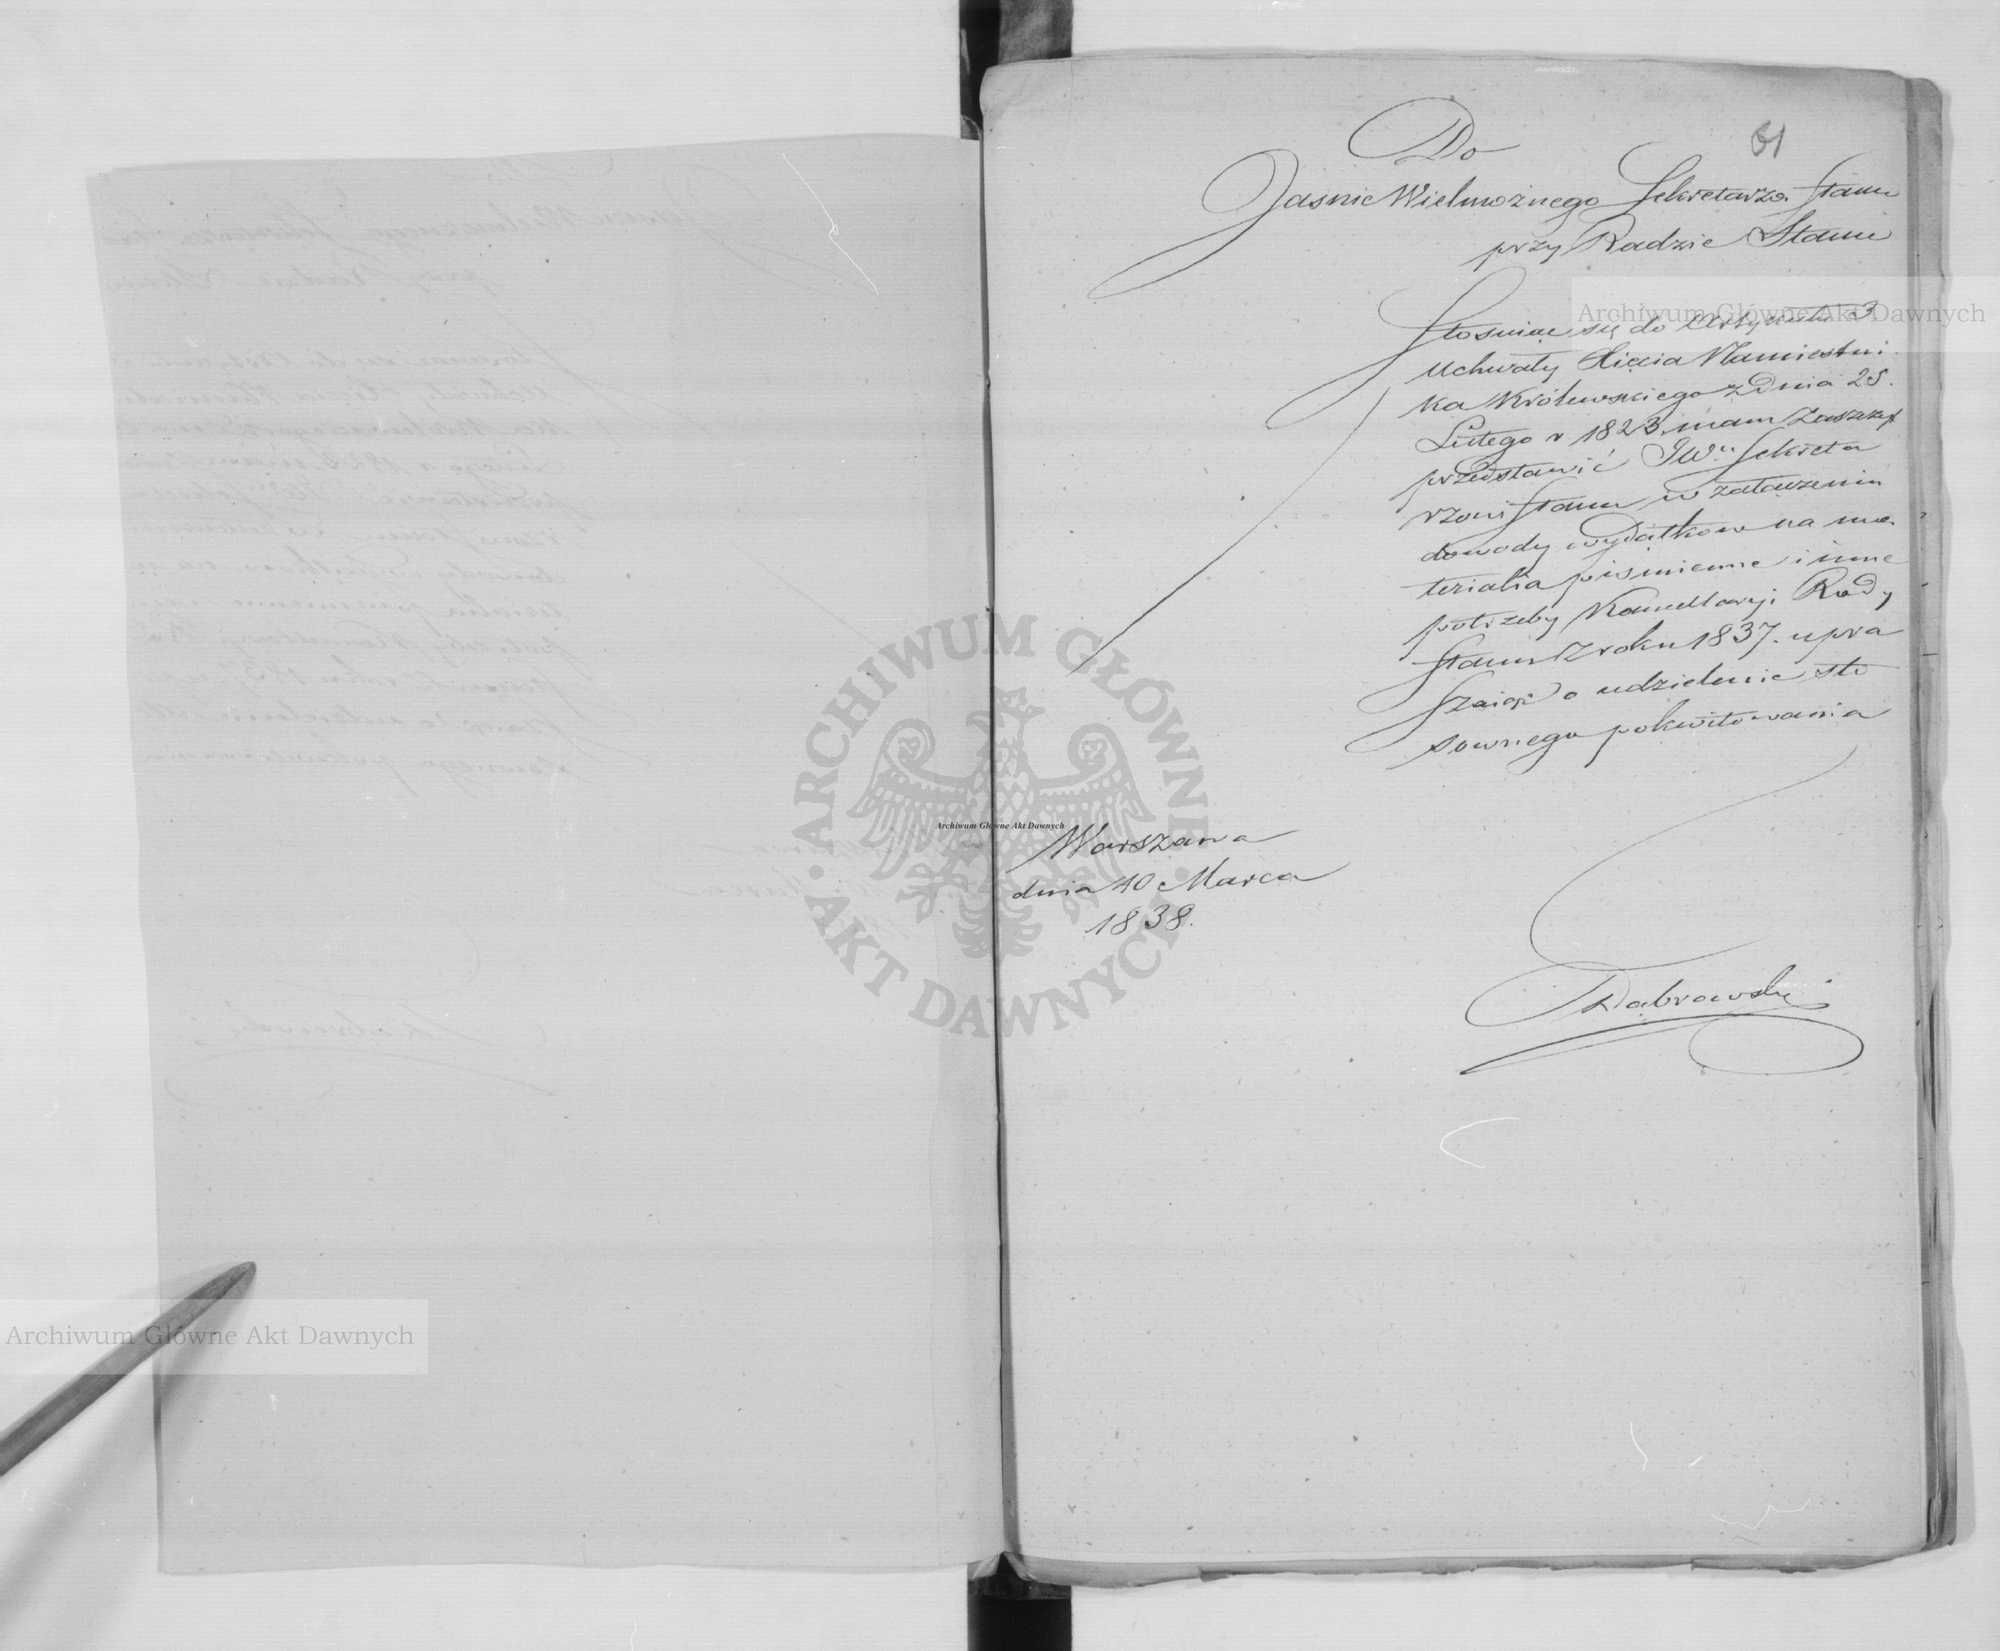 61
Do
Jasnie Wielmożnego Sekretarza Stanu
przy Radzie Stanu
Stosuiąc się do Artykułu 3
Uchwały Xięcia Namiestni
ka Królewskiego z Dnia 25.
Lutego r 1823. mam Zaszczyt
przedstawić JWu Sekreta
rzowi Stanu w załączeniu
dowody wydatków na ma
terialia piśmienne i inne
potrzeby Kancellaryi Rady
Stanu z roku 1837. upra
szaiąc o udzielenie sto
sownego pokwitowania
Warszawa
dnia 10 Marca
1838.
Dąbrowski
Archiwum Główne Akt Dawnych
Archiwum Główne Akt Dawnych
Archiwum Główne Akt Dawnych
ARCHIWUM GŁÓWNE
AKT DAWNYCH